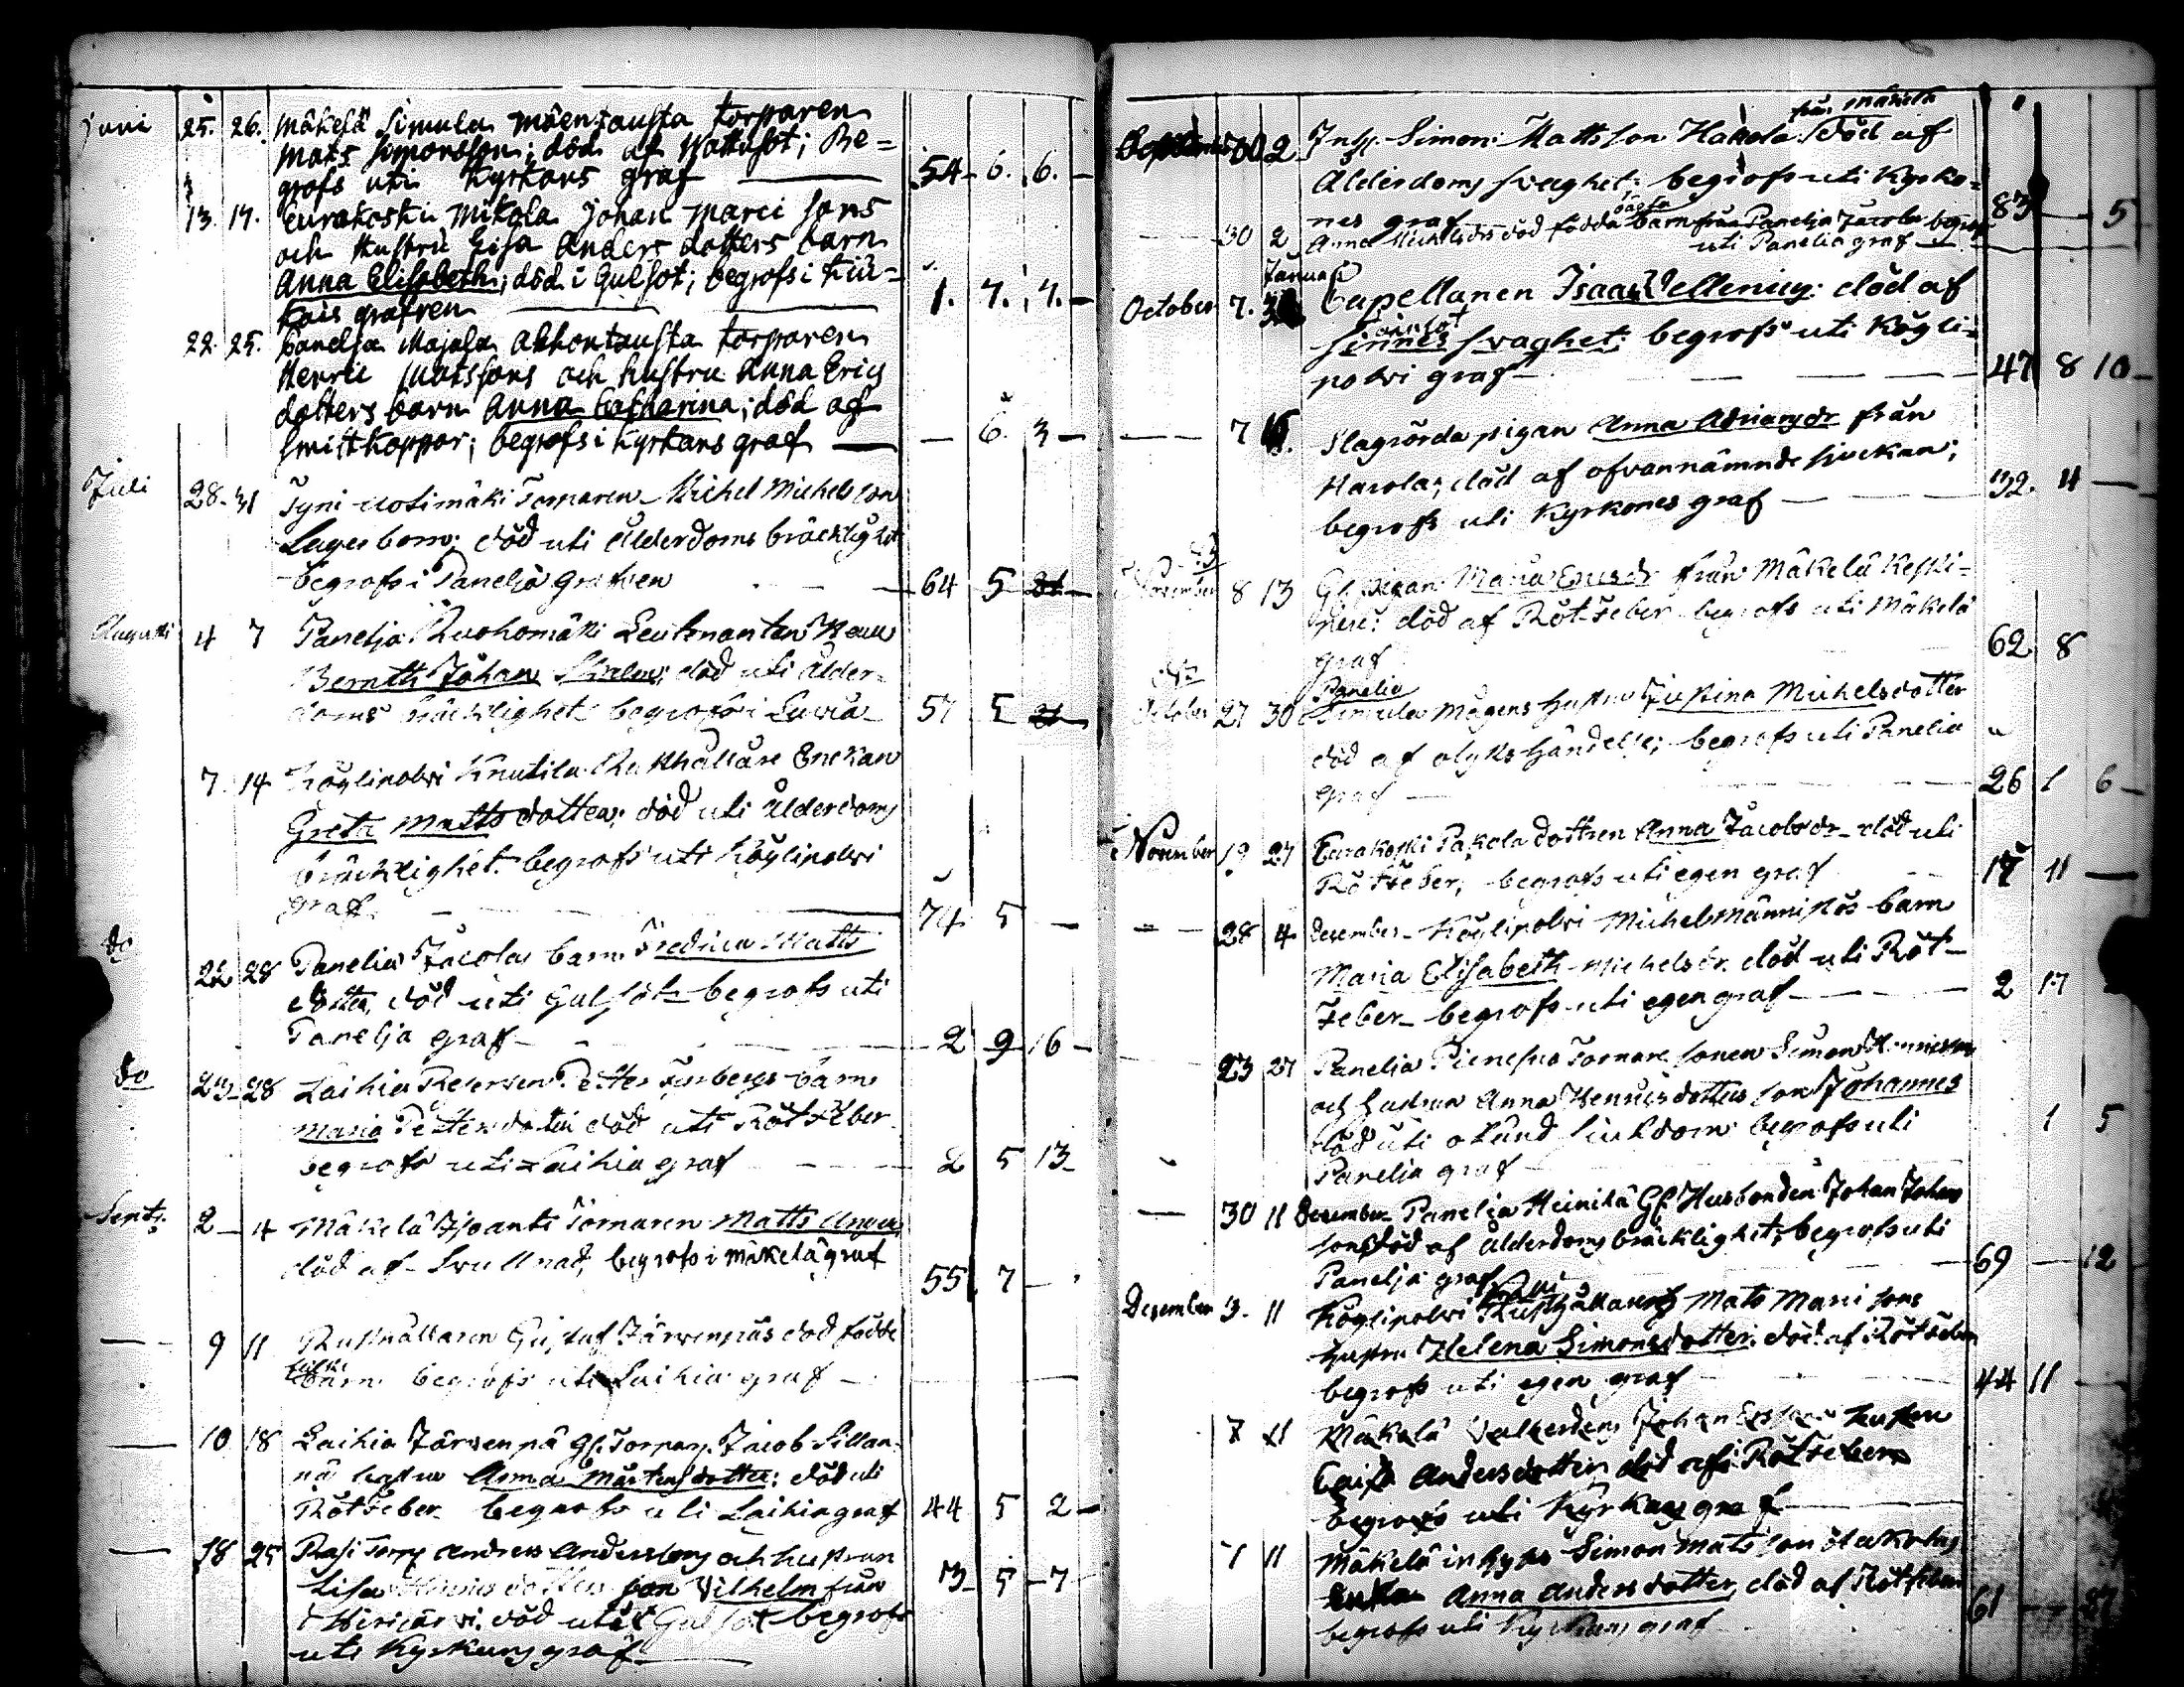 Juni 25. 26. Mäkelä Simula Mäentausta torparen
Mats Simonsson; död af Wattusot; Be=
grofs uti Kyrkans graf 54 6. 6.
13. 17. Eurakoski Mikola Johan Marci sons
och Hustru Lisa Anders dotters barn
Anna Elisabeth; död i Gulsot; begrofs i Kiu=
kais grafven 1. 7. 7.
22. 25. Panelja Majala Ahhontausta torparen
Henric Matssons och hustru Anna Erics
dotters barn Anna Catharina; död af
smittkoppor; begrofs i Kyrkans graf — 6. 3
Juli 28. 31 Tyni torparen Michel Michelsson
Lagerbom; död uti ålderdoms bräcklighet
begrofs i Panelja grafven 64 5
Augusti 4 7 Panelja Ruohomäki Leutenanten
Bernth Johan död uti ålder=
doms bräcklighet begrofs i Luvia 57 5
7. 14 Köylipolvi Knutila Rusthållare Enekan
Greta Matts dotter; död uti ålderdoms
bräcklighet begrofs uti Köylipolvi
graf. 74 5 —
do 22 28 Panelia Jacola barn Fredrica Matts
dotter, död uti Gulsot begrofs uti
Panelja graf 2 9 16
do 23 28 Laihia Petter barn
Maria Petters dotter död uti Rötfeber
begrofs uti Laihia graf 2 5 13
Sept. 2 4 Mäkelä torparen Matts
död af Svullnad, begrofs i Mäkelä graf 55 7 —
— 9 11 Rusthållaren Gustaf Järvenpäs död födde
barn begrofs uti Laihia graf —
— 10 18 Laihia Järvenpä Gl. Torpars Jacob Sillan=
pä hustru Anna Mårtensdotter; död uti
Rötfeber begrofs uti Laihia graf 44 5 2
— 18 25 Torp Anders Anderssons och hustrun
Lisa dotters son Vilhelm från
Hirvjärvi. död uti Gulsot begrofs 3 5 7
uti Kyrkans graf
30 2 Inh. Simon Mattsson Hakola från Mäkelä död af
Ålderdoms svaghet; begrofs uti Kyrko=
nes graf 83 — 5
30 2 Anna Michelsdrs död födda barn från Panelja Jacola begrofs
uti Panelia graf
October 7. Capellanen Isaac Vellenius: död af
sinnes svaghet; begrofs uti Kögli=
polvi graf 47 8 10
— 7 Slagrörda pigan Anna Adriansdr från
Harola; död af ofvannämnde sjuckan;
begrofs uti Kyrkones graf 32. 4 —
November 8 13 Gl. pigan Maria Ericsdr från Mäkelä Keski=
död af Röt-Feber begrofs uti Mäkelä
graf 62 8
October 27 30 Panelia Simula Mågens hustru Justina Michelsdotter
död af olyks händelse; begrofs uti Panelia
graf 26 1 6
November 19 27 Eurakoski Pakola dottren Anna Jacobsdr död uti
Rötfeber; begrofs uti egen graf 17 11 —
— 28 4 December Köylipolvi Michel Männistös barn
Maria Elisabeth Michelsdr. död uti Röt-
Feber begrofs uti egen graf 2 17
23 27 Panelia torpare sonen Simon Henricssons
och hustrun Anna Henricsdotters son Johannes
död uti okänd siukdom begrofs uti 1 5
Panelja graf
— 30 11 December Panelia Heinilä Gl. Husbonden Johan Johans
son död af ålderdoms bräcklighet; begrofs uti
Panelja graf 69 — 12
December 3. 11 Köylipolvi Rusthållarens Mats Marci sons
hustru Helena Simonsdotter: död af Rötfeber
begrofs uti egen graf 44 11 —
7 11 Mäkelä Johan hustru
Caisa Andersdotter död af Rötfeber
begrofs uti Kyrkans graf
7 11 Mäkelä inhyses Simon Mats son Hakolas
Enka Anna Anders dotter, död af Rötfeber
begrofs uti Kyrkans graf 61 —